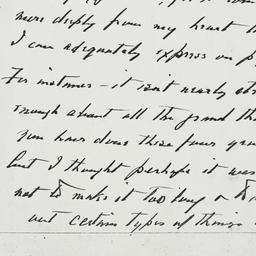 more deeply from my heart
I can adequately express on
For instance - it isn't nearly
enough about all the grand
you have done these four
but I thought perhaps it was
not to make it too long or
out certain types of things